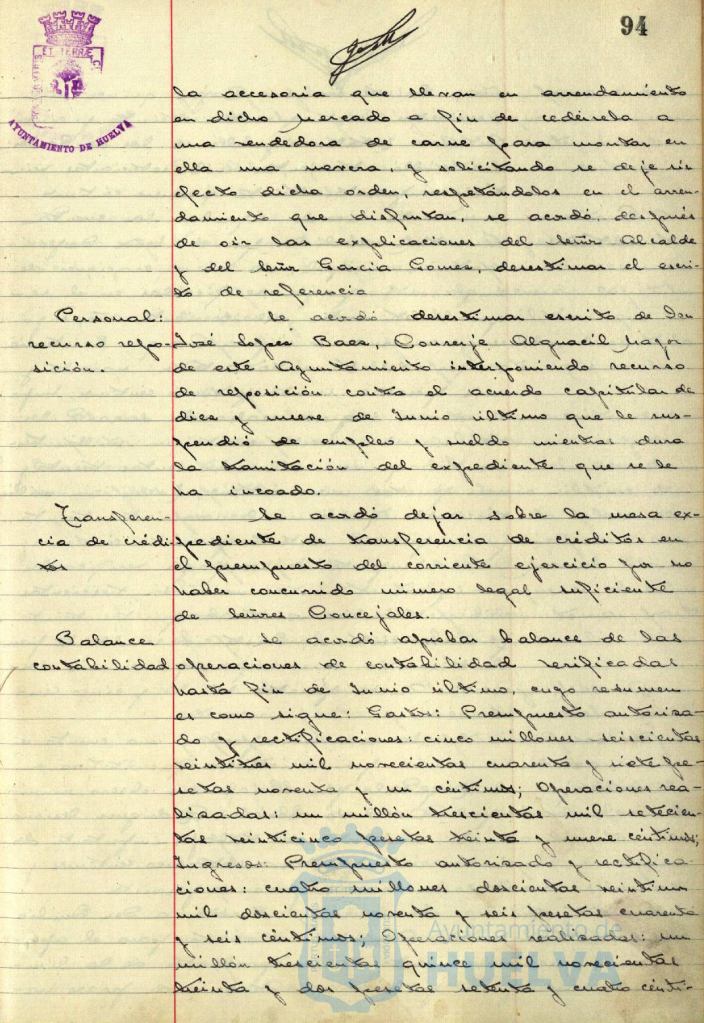 94
ET TERRÆ C
AYUNTAMIENTO DE HUELVA
la accesoria que llevan en arrendamiento
en dicho Mercado a fin de cedérsela a
una vendedora de carne para montar en
ella una nevera, y solicitando se deje sin
efecto dicha orden, respetándolos en el arren-
damiento que disfrutan, se acordó, después
de oir las explicaciones del Señor Alcalde
y del Señor García Gomez, desestimar el escri-
to de referencia
Personal:
recurso repo-
sición.
Se acordó desestimar escrito de Don
José Lopez Baez, Conserje Alguacil Mayor
de este Ayuntamiento interponiendo recurso
de reposición contra el acuerdo capitular de
diez y nueve de Junio último que le sus-
pendió de empleo y sueldo mientras dura
la tramitación del expediente que se le
ha incoado.
Transferen-
cia de crédi-
tos
Se acordó dejar sobre la mesa ex-
pediente de transferencia de créditos en
el presupuesto del corriente ejercicio por no
haber concurrido número legal suficiente
de Señores Concejales.
Balance
contabilidad
Se acordó aprobar balance de las
operaciones de contabilidad verificadas
hasta fin de Junio último, cuyo resumen
es como sigue: Gastos: Presupuesto autoriza-
do y rectificaciones: cinco millones seiscientas
veintitres mil novecientas cuarenta y siete pe-
setas noventa y un céntimos; Operaciones rea-
lizadas: un millón trescientas mil setecien-
tas veinticinco pesetas treinta y nueve céntimos;
Ingresos: Presupuesto autorizado y rectifica-
ciones: cuatro millones doscientas veintiun
mil doscientas noventa y seis pesetas cuarenta
y seis céntimos; Operaciones realizadas: un
millón trescientas quince mil novecientas
treinta y dos pesetas setenta y cuatro cénti-
Ayuntamiento de
HUELVA